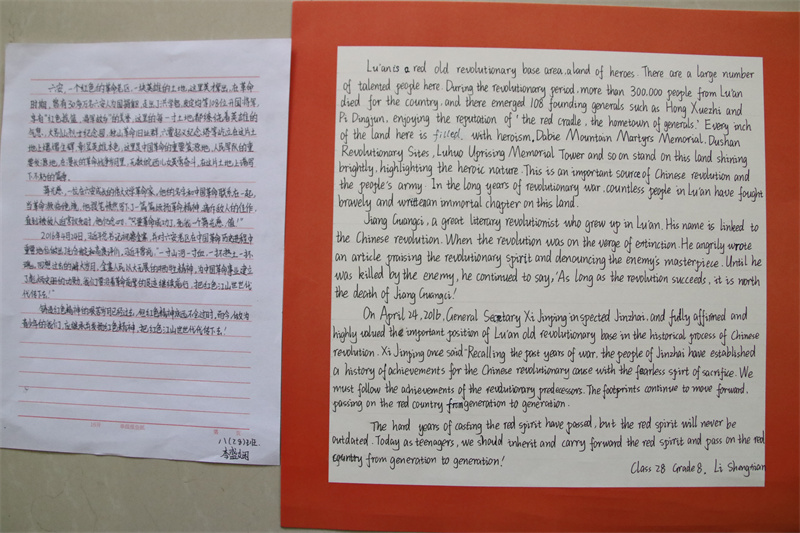 六安,一个红色的革命老区,一块英雄的土地。这里英才辈出,在革命
时期,曾有30多万名六安人为国捐躯,走出了洪学智、皮定均等108位开国将军,
享有“红色摇篮,将军故乡”的美誉。这里的每一寸土地都 着英雄的
气息。大别山烈士纪念园、独山革命旧址群、六霍起义纪念塔等屹立在这片土
地上 这里是中国革命的重要策源地、人民军队的重
要发源地。在漫长的革命战争 里,无数皖西儿女英勇奋斗,在这片土地上谱写
下不朽的篇章。
蒋光慈,一位在六安成长的伟大文学革命家,他的名字和中国革命联系在一起。
“只要革命成功了,死我一个蒋光慈,值!”
2016年4月24日,习近平总书记视察金寨,
重要地位 高度评价。习近平曾说,“一寸山河一寸血,一抔热土一抔
魂。回想过去的烽火岁月,金寨人民以大无畏的牺牲精神,为中国革命事业建立
了彪炳史册的功勋,我们要沿着革命前辈的足迹继续前行,把红色江山世世代代
传下去!”
铸造红色精神的艰苦岁月已经过去,但红色精神永远不会过时。而今,作为
青少年的我们,应继承和发扬红色精神,把红色江山世世代代传下去!
八(28)班
李盛
Lu'an is a red old revolutionary base area, a land of heroes. There are a large number
of talented people here. During the revolutionary period, more than 300,000 people from Lu'an
died for the country, and there emerged 108 founding generals such as Hong Xuezhi and
Pi Dingjun, enjoying the reputation of 'the red cradle, the hometown of generals.' Every inch
of the land here is filled with heroism, Dabie Mountain Martyrs Memorial, Dushan
Revolutionary Sites, Luhuo Uprising Memorial Tower and so on stand on this land shining
brightly, highlighting the heroic nature. This is an important source of Chinese revolution and
the people's army. In the long years of revolutionary war, countless people in Lu'an have fought
bravely and written an immortal chapter on this land.
Jiang Guangci, a great literary revolutionist who grew up in Lu'an. His name is linked to
the Chinese revolution. When the revolution was on the verge of extinction. He angrily wrote
an article praising the revolutionary spirit and denouncing the enemy's masterpiece. Until he
was killed by the enemy, he continued to say, 'As long as the revolution succeeds, it is north
the death of Jiang Guangci!
On April 24, 2016, General Secretary Xi Jinping inspected Jinzhai, and fully affirmed and
highly valued the important position of Lu'an old revolutionary base in the historical process of Chinese
revolution. Xi Jinping once said: Recalling the past years of war, the people of Jinzhai have established
a history of achievements for the Chinese revolutionary cause with the fearless spirt of sacrifice. We
must follow the achievements of the revolutionary predecessors. The footprints continue to move forward,
passing on the red country from generation to generation.
The hard years of casting the red spirit have passed, but the red spirit will never be
outdated. Today as teenagers, we should inherit and carry forward the red spirit and pass on the red
country from generation to generation!
Class 28 Grade 8. Li Shengtian